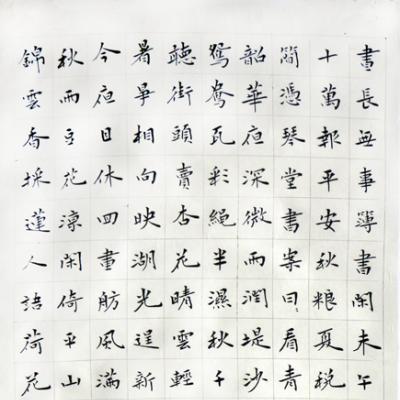 晝長無事簿書閑未午
十萬報平安秋糧夏稅
簡憑琴堂書案日看青
韶華夜深微雨潤堤沙
鴛鴦瓦彩繩半濕秋千
聽街頭賣杏花晴雲輕
暑爭相向映湖光逞新
今夜且休回畫舫風滿
秋雨豆花涼閑倚平山
錦雲香採蓮人語荷花